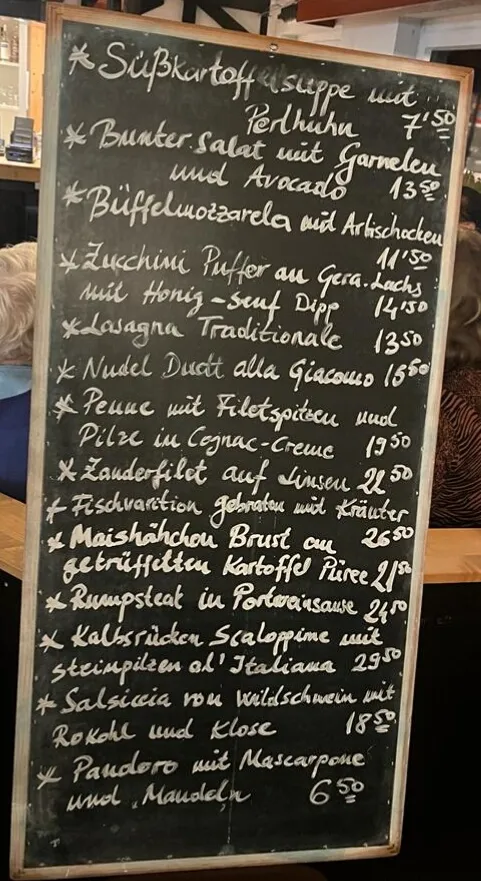 * Süßkartoffelsuppe mit
Perlhuhn 7'50
* Bunter Salat mit Garnelen
und Avocado 13 50
* Büffelmozzarela mit Artischocken
11'50
* Zucchini Puffer an Gera. Lachs
mit Honig-senf Dipp 14'50
* Lasagna Traditionale 13 50
* Nudel Duett alla Giacomo 15 50
* Penne mit Filetspitzen und
Pilze in Cognac-Creme 19 50
* Zanderfilet auf Linsen 22 50
* Fischvarition gebraten mit Kräuter
26 50
* Maishähchen Brust an
getrüffelten Kartoffel Püree 21 50
* Rumpsteat in Portweinsause 24 50
* Kalbsrücken Scaloppime mit
steinpilzen al'Italiana 29 50
* Salsiccia von Wildschwein mit
Rokohl und Klose 18 50
* Pandoro mit Mascarpone
und Mandeln 6 50